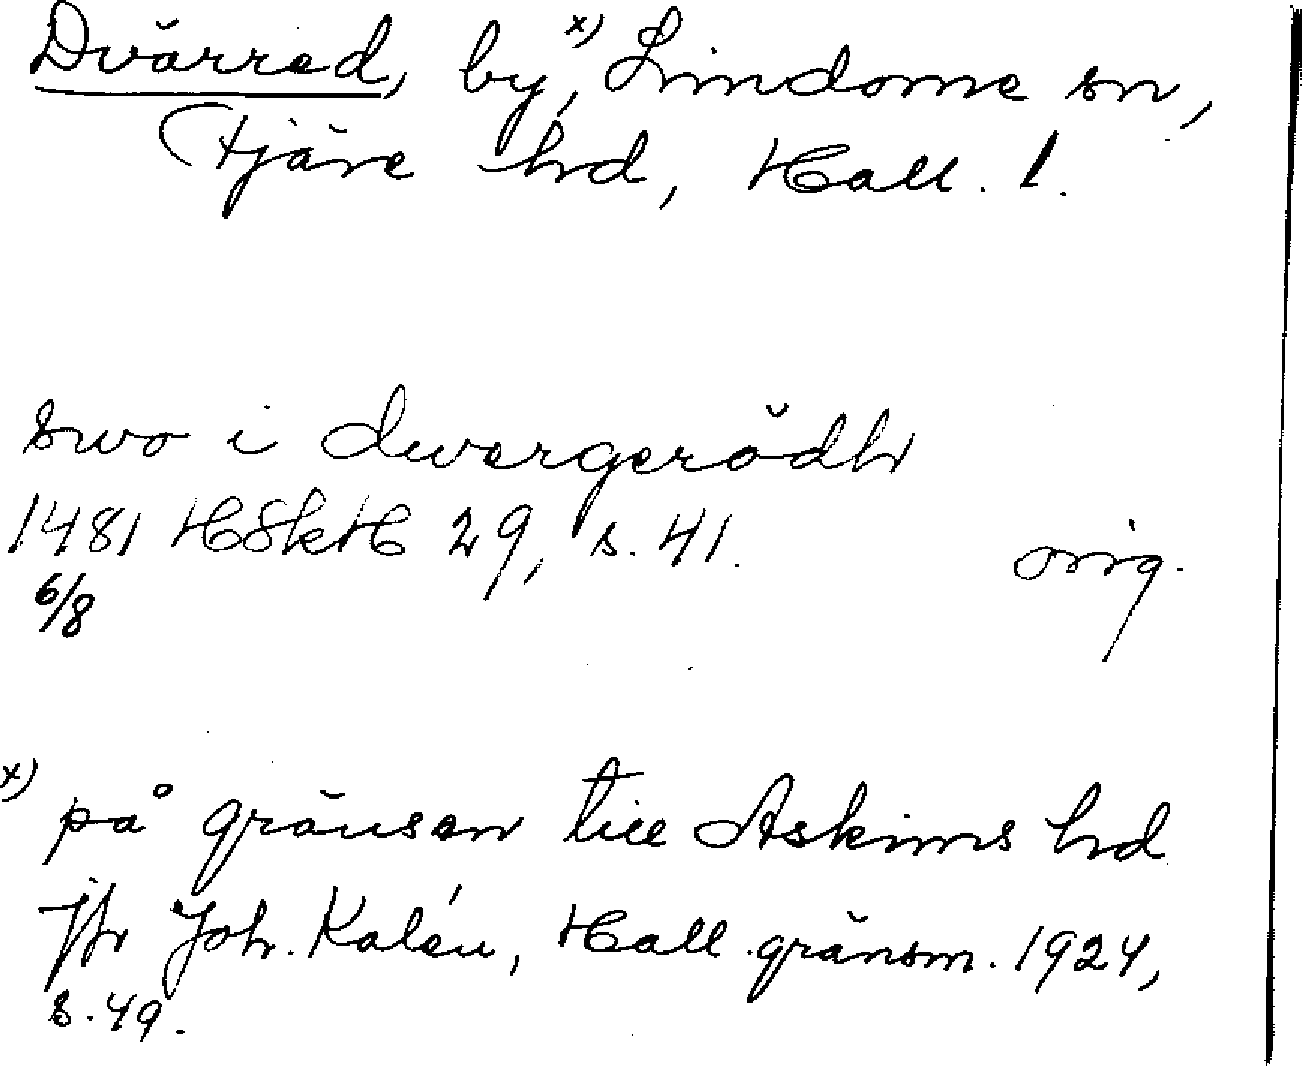 Dvärred, by,ˣ⁾ Lindome sn,
Fjäre hd, Hall. l.
svo i dwergerödh
1481 HSkH 29, s. 41. orig.
6/8
x) på gränsen till Askims hd
jfr Joh. Kalén, Hall. gränsm. 1924,
s. 49.